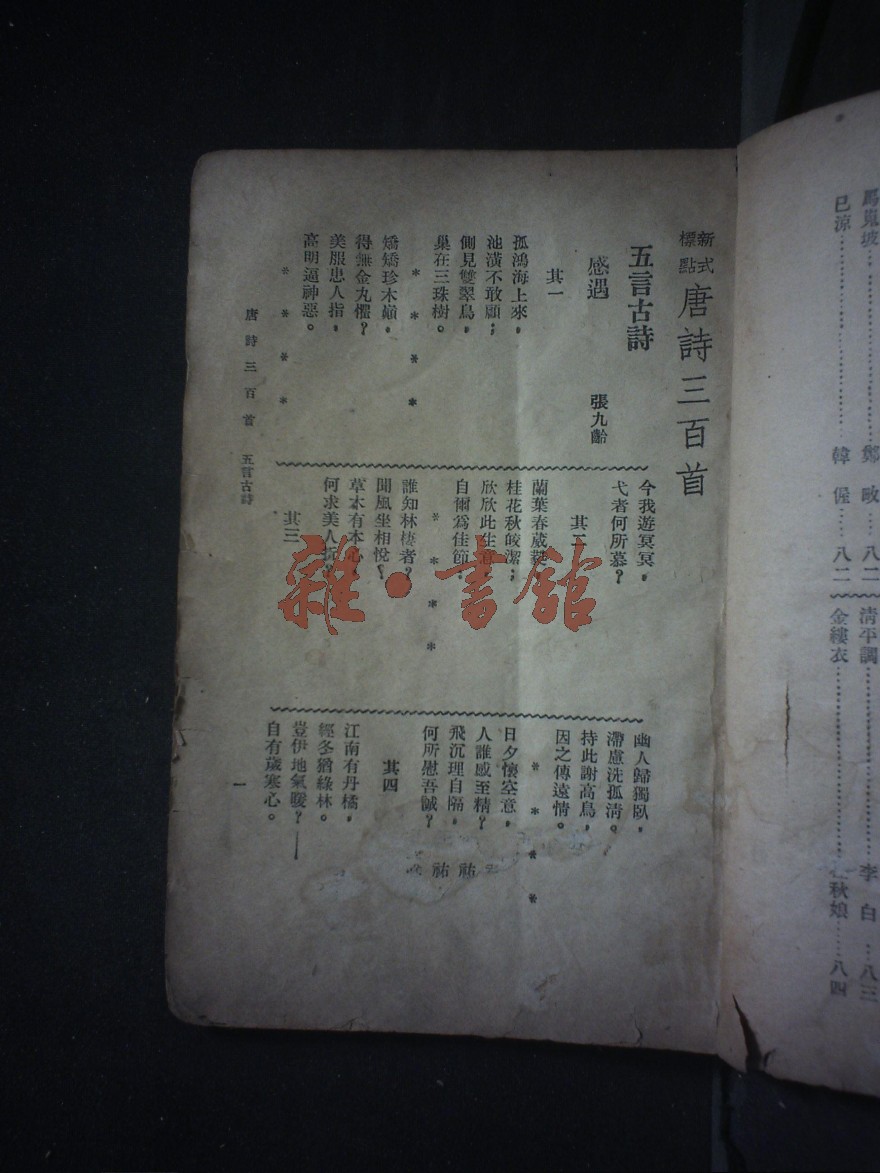 馬嵬坡……………………鄭畋…八二
已涼……………………韓偓…八二
清平調……………………李白…八三
金縷衣……………………杜秋娘……八四
新式標點
唐詩三百首
五言古詩
感遇 張九齡
其一
孤鴻海上來，
池潢不敢顧；
側見雙翠鳥，
巢在三珠樹。
* * * *
矯矯珍木巔，
得無金丸懼？
美服患人指，
高明逼神惡。
* * * *
今我遊冥冥，
弋者何所慕？
其二
蘭葉春葳蕤，
桂花秋皎潔；
欣欣此生意，
自爾爲佳節。
* * * *
誰知林棲者？
聞風坐相悅；
草木有本心，
何求美人折？
其三
幽人歸獨臥，
滯慮洗孤清。
持此謝高鳥，
因之傳遠情。
* * * *
日夕懷空意，
人誰感至精？
飛沉理自隔，
何所慰吾誠？
其四
江南有丹橘，
經冬猶綠林。
豈伊地氣暖？——
自有歲寒心。
唐詩三百首 五言古詩
一
雜·書館